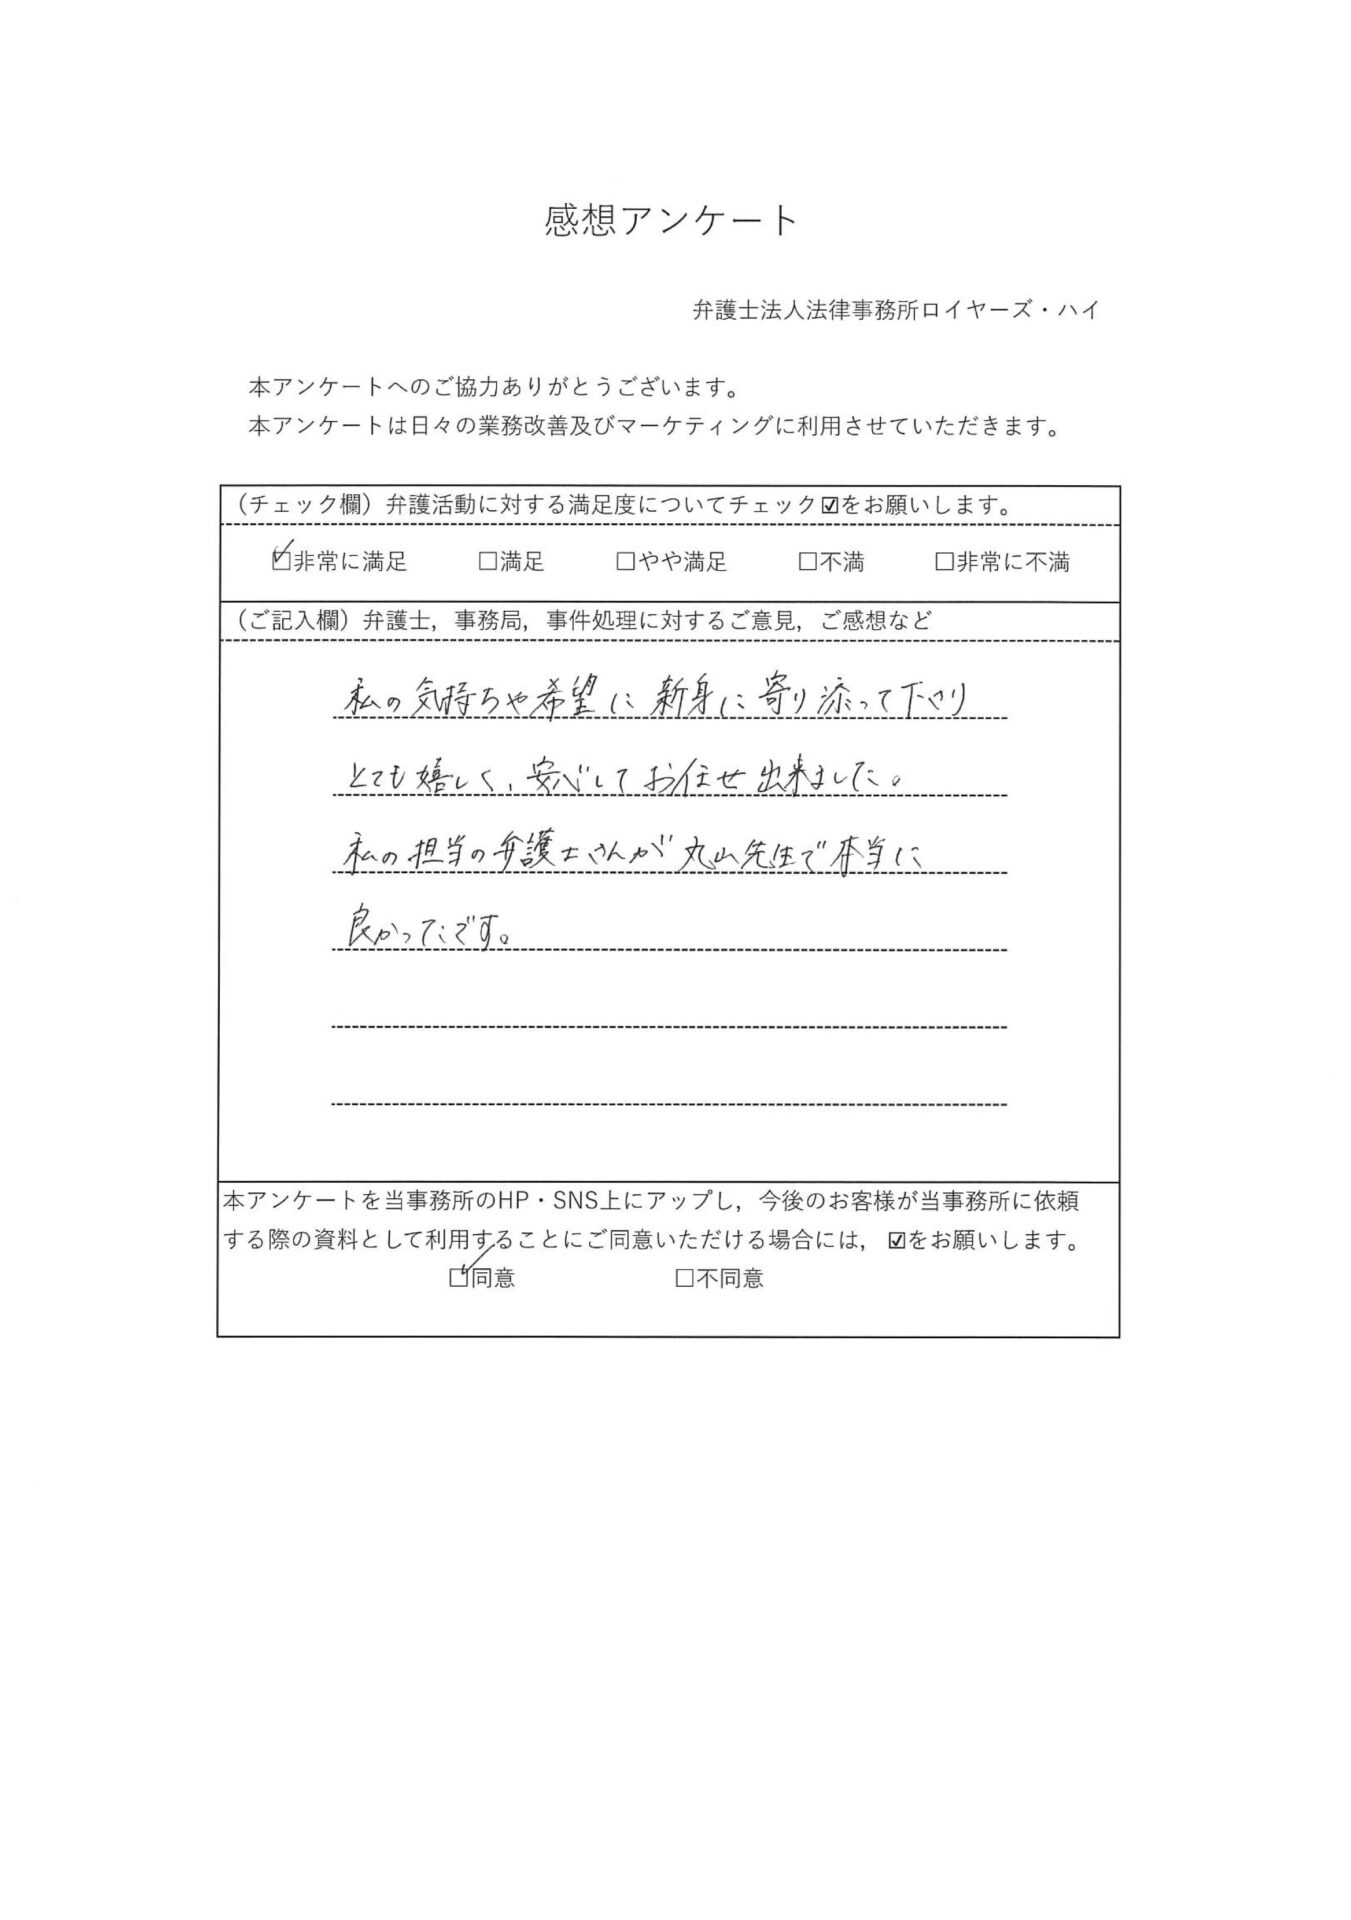 感想アンケート
弁護士法人法律事務所ロイヤーズ・ハイ
本アンケートへのご協力ありがとうございます。
本アンケートは日々の業務改善及びマーケティングに利用させていただきます。
（チェック欄）弁護活動に対する満足度についてチェック☑をお願いします。
☑非常に満足 □満足 □やや満足 □不満 □非常に不満
（ご記入欄）弁護士，事務局，事件処理に対するご意見，ご感想など
私の気持ちや希望に新身に寄り添って下さり
とても嬉しく、安心してお任せ出来ました。
私の担当の弁護士さんが丸山先生で本当に
良かったです。
本アンケートを当事務所のHP・SNS上にアップし，今後のお客様が当事務所に依頼
する際の資料として利用することにご同意いただける場合には，☑をお願いします。
☑同意 □不同意